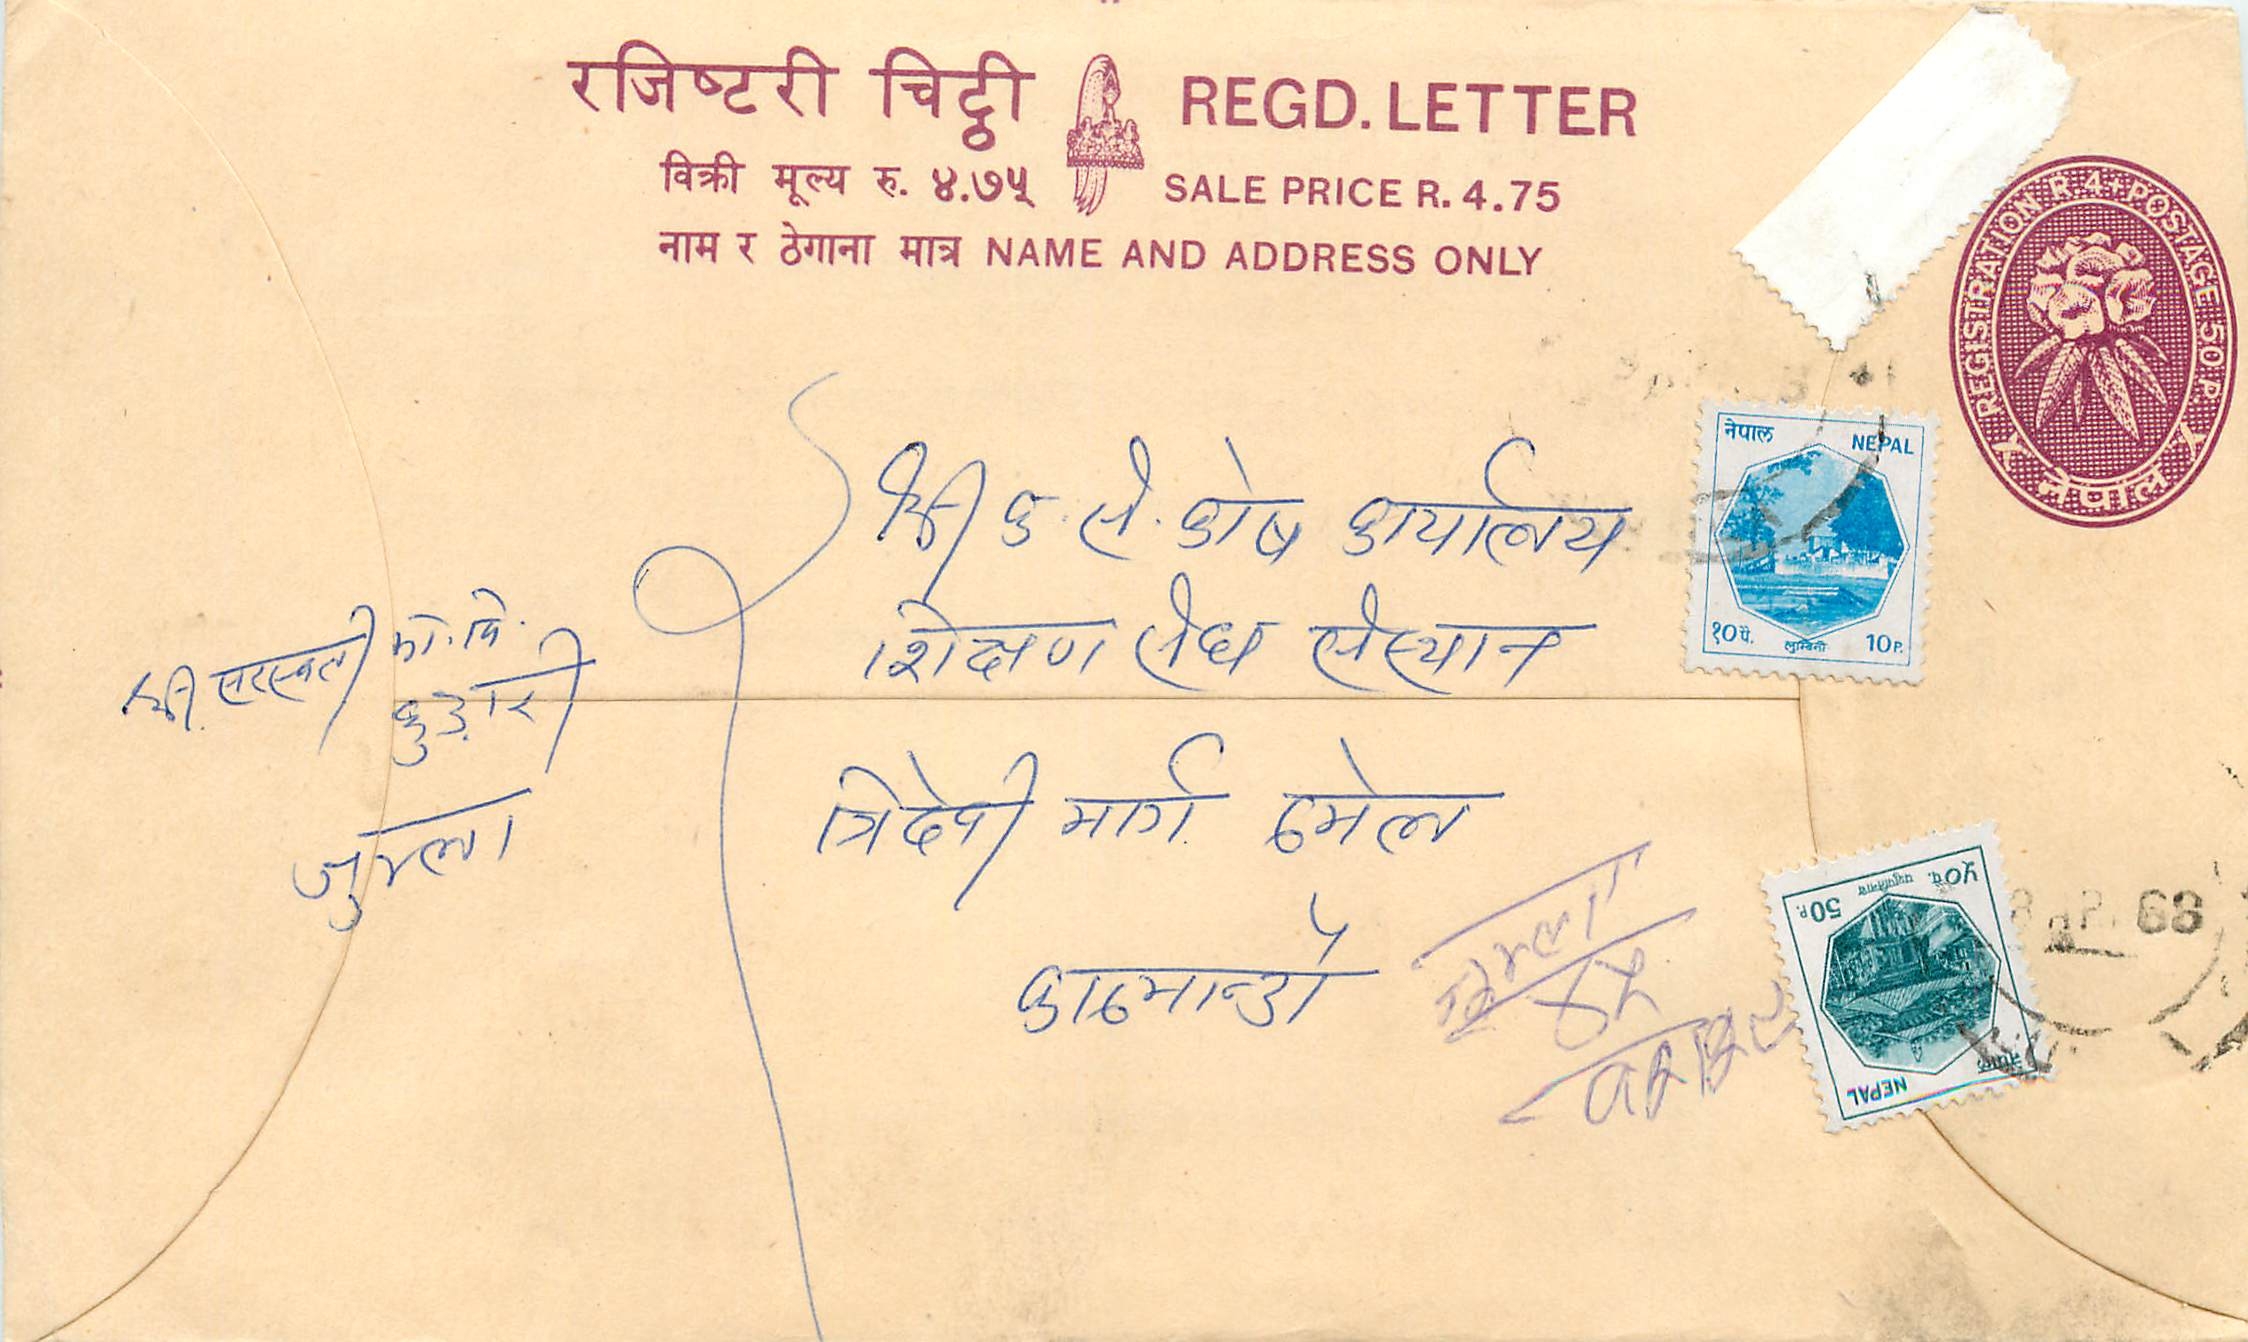 रजिष्टरी चिट्ठी REGD. LETTER
विक्री मूल्य रु. ४.७५ SALE PRICE R. 4.75
नाम र ठेगाना मात्र NAME AND ADDRESS ONLY
REGISTRATION R.4+POSTAGE 50 P.
नेपाल
नेपाल NEPAL
१० पै. लुम्बिनी 10 P.
श्री क. सं. कोष कार्यालय
शिक्षण संघ संस्थान
त्रिदेवी मार्ग ठमेल
काठमान्डौ
श्री सरस्वती मा. वि.
कुडारी
जुम्ला
जुम्ला
५० पै. पशुपतिनाथ 50 P.
नेपाल NEPAL
89